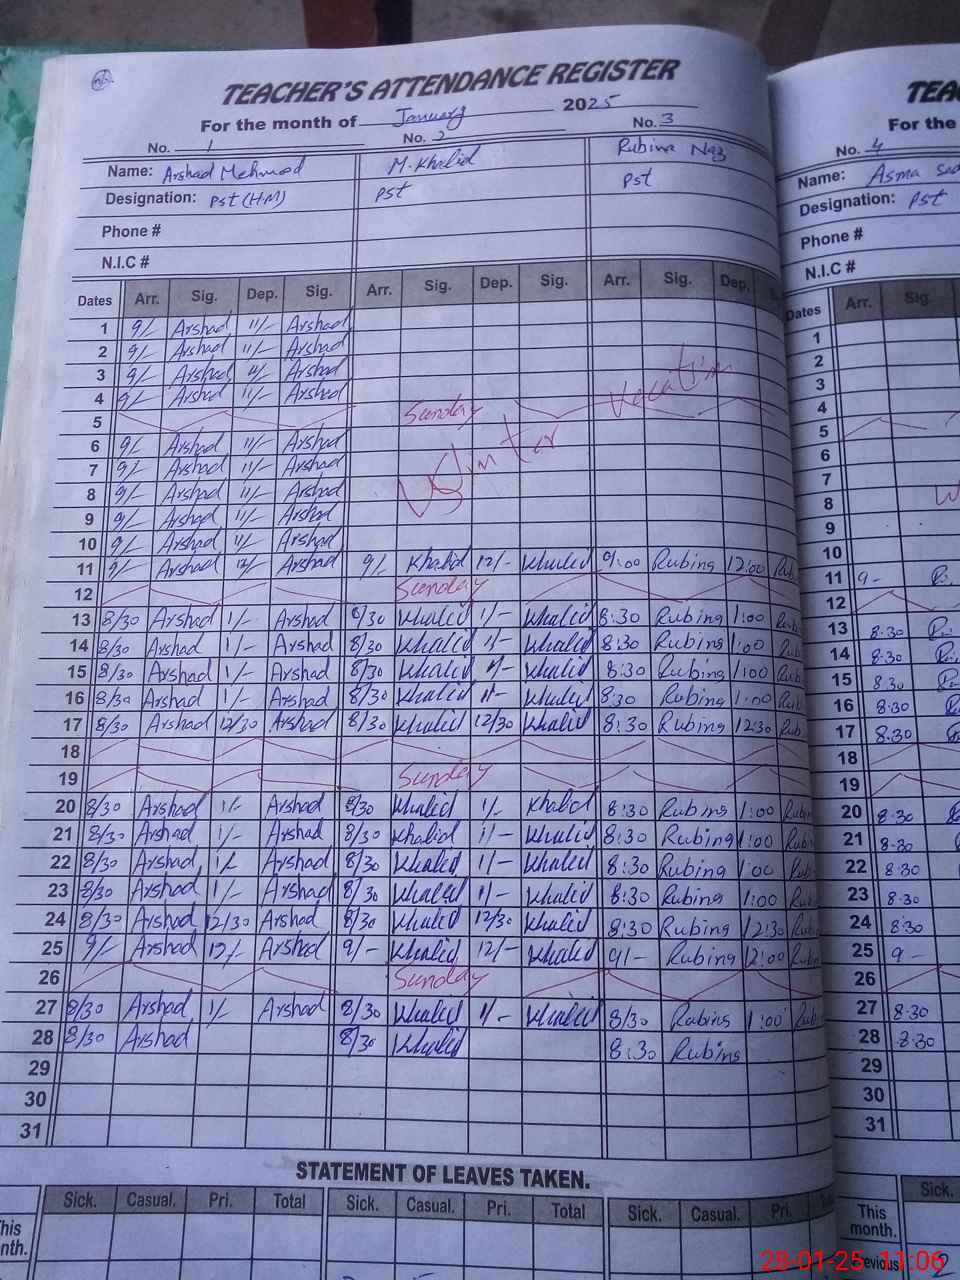 TEACHER'S ATTENDANCE REGISTER TEA
For the month of January 2025 For the
No. 1 No. 2 No. 3 No. 4
Name: Arshad Mehmood M. Khalid Rubina Naz Name: Asma
Designation: Pst (H.M) Pst Pst Designation: Pst
Phone # Phone #
N.I.C # N.I.C #
Dates Arr. Sig. Dep. Sig. Arr. Sig. Dep. Sig. Arr. Sig. Dep. Dates Arr. Sig.
1 9/- Arshad 11/- Arshad 1
2 9/- Arshad 11/- Arshad 2
3 9/- Arshad 11/- Arshad 3
4 9/- Arshad 11/- Arshad 4
5 Sunday 5
Winter Vacation
6 9/- Arshad 11/- Arshad 6
7 9/- Arshad 11/- Arshad 7
8 9/- Arshad 11/- Arshad 8
9 9/- Arshad 11/- Arshad 9
10 9/- Arshad 11/- Arshad 10
11 9/- Arshad 12/- Arshad 9/- Khalid 12/- Khalid 9:00 Rubina 12:00 Rub 11 9-
12 Sunday 12
13 8/30 Arshad 1/- Arshad 8/30 Khalid 1/- Khalid 8:30 Rubina 1:00 Rub 13 8.30
14 8/30 Arshad 1/- Arshad 8/30 Khalid 1/- Khalid 8:30 Rubina 1:00 Rub 14 8.30
15 8/30 Arshad 1/- Arshad 8/30 Khalid 1/- Khalid 8:30 Rubina 1:00 Rub 15 8.30
16 8/30 Arshad 1/- Arshad 8/30 Khalid 1/- Khalid 8:30 Rubina 1:00 Rub 16 8.30
17 8/30 Arshad 12/30 Arshad 8/30 Khalid 12/30 Khalid 8:30 Rubina 12:30 Rub 17 8.30
18 18
19 Sunday 19
20 8/30 Arshad 1/- Arshad 8/30 Khalid 1/- Khalid 8:30 Rubina 1:00 Rub 20 8.30
21 8/30 Arshad 1/- Arshad 8/30 Khalid 1/- Khalid 8:30 Rubina 1:00 Rub 21 8.30
22 8/30 Arshad 1/- Arshad 8/30 Khalid 1/- Khalid 8:30 Rubina 1:00 Rub 22 8.30
23 8/30 Arshad 1/- Arshad 8/30 Khalid 1/- Khalid 8:30 Rubina 1:00 Rub 23 8.30
24 8/30 Arshad 12/30 Arshad 8/30 Khalid 12/30 Khalid 8:30 Rubina 12:30 Rub 24 8.30
25 9/- Arshad 12/- Arshad 9/- Khalid 12/- Khalid 9/- Rubina 12:00 Rub 25 9-
26 Sunday 26
27 8/30 Arshad 1/- Arshad 8/30 Khalid 1/- Khalid 8/30 Rubina 1:00 Rub 27 8.30
28 8/30 Arshad 8/30 Khalid 8:30 Rubina 28 8.30
29 29
30 30
31 31
STATEMENT OF LEAVES TAKEN.
Sick. Casual. Pri. Total Sick. Casual. Pri. Total Sick. Casual. Pri. Sick.
This month. This month.
Previous 2
28-01-25 11:06